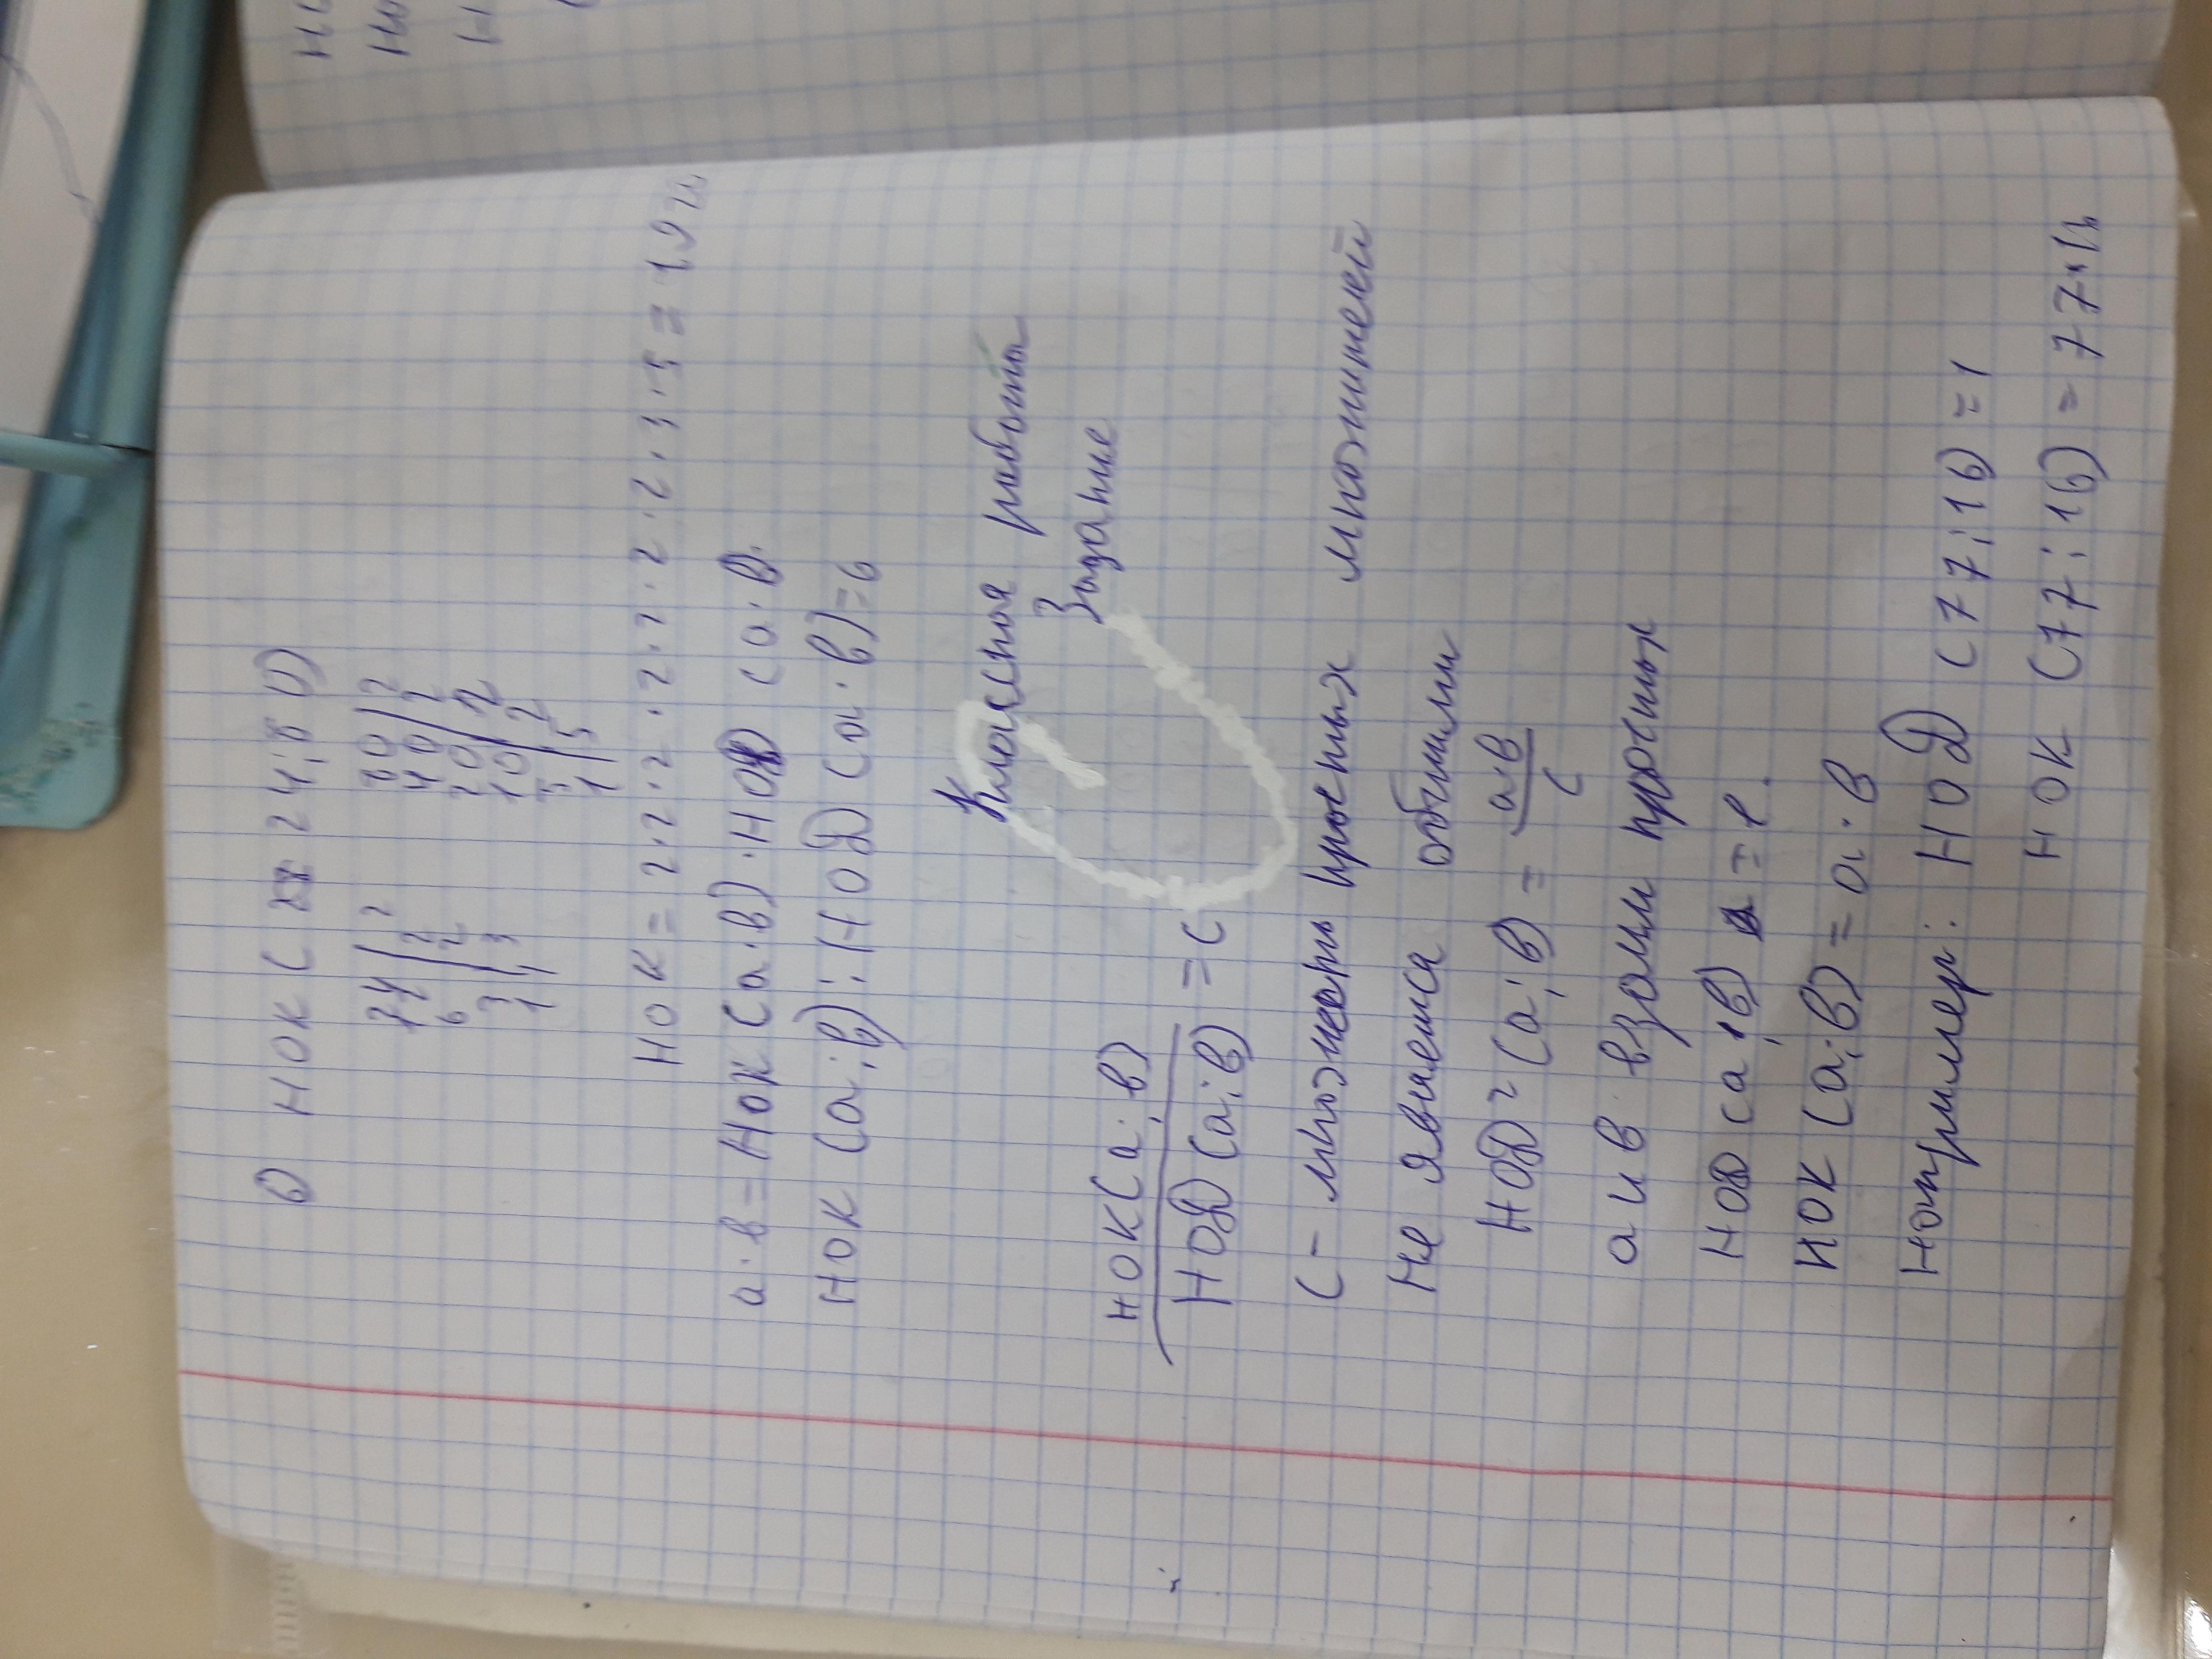 б) НОК ( 24; 80)
24 | 2 80 | 2
6 | 2 40 | 2
3 | 3 20 | 2
1 10 | 2
5 | 5
1
НОК = 2·2·2·2·2·2·2·3·5=19
а·в=НОК(а·в)·НОД (а·в)
НОК (а;в):НОД(а·в)=6
Классная работа
Задание
НОК(а;в)
НОД(а;в) =С
С- множеоть простых множителей
Не явняется общими
НОД=(а;в) = а·в
с
а и в взоми простых
НОД (а;в) =1.
НОК (а;в)=а·в
Например: НОД (77;16)=1
НОК (77;16)=77·16